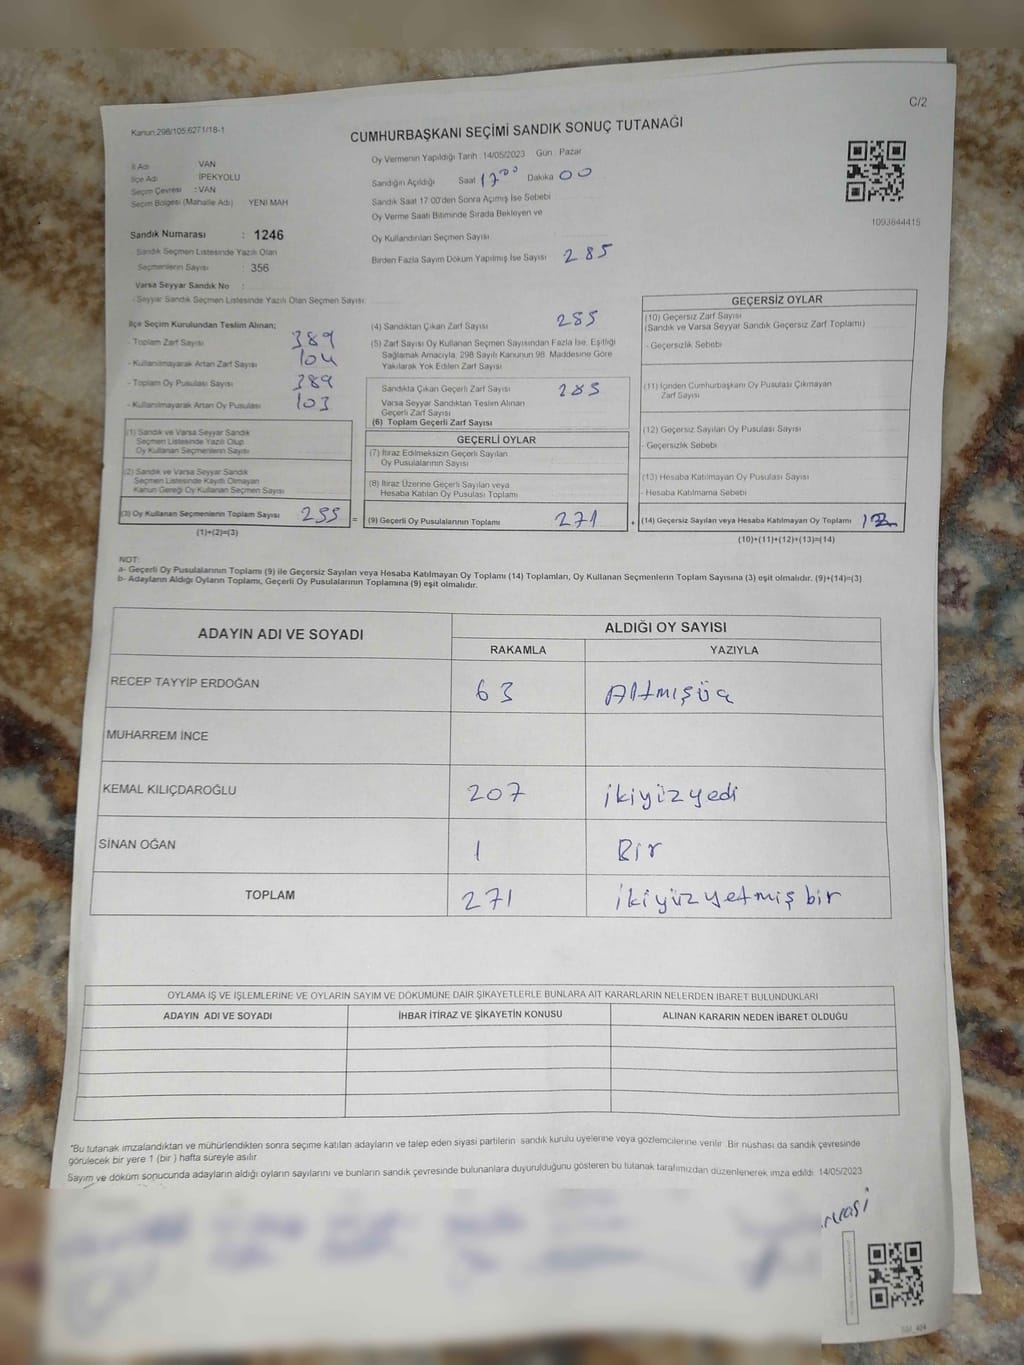 C/2
Kanun;298/105,6271/18-1
CUMHURBAŞKANI SEÇİMİ SANDIK SONUÇ TUTANAĞI
İl Adı VAN
İlçe Adı İPEKYOLU
Seçim Çevresi : VAN
Seçim Bölgesi (Mahalle Adı) YENİ MAH
Sandık Numarası : 1246
Sandık Seçmen Listesinde Yazılı Olan
Seçmenlerin Sayısı : 356
Varsa Seyyar Sandık No :
- Seyyar Sandık Seçmen Listesinde Yazılı Olan Seçmen Sayısı:
Oy Vermenin Yapıldığı Tarih : 14/05/2023 Gün : Pazar
Sandığın Açıldığı Saat 17 00 Dakika 00
Sandık Saat 17:00'den Sonra Açımış İse Sebebi
Oy Verme Saati Bitiminde Sırada Bekleyen ve
Oy Kullandırılan Seçmen Sayısı
Birden Fazla Sayım Döküm Yapılmış İse Sayısı 285
1093844415
İlçe Seçim Kurulundan Teslim Alınan;
- Toplam Zarf Sayısı 389
- Kullanılmayarak Artan Zarf Sayısı 104
- Toplam Oy Pusulası Sayısı 389
- Kullanılmayarak Artan Oy Pusulası 103
(1) Sandık ve Varsa Seyyar Sandık
Seçmen Listesinde Yazılı Olup
Oy Kullanan Seçmenlerin Sayısı
(2) Sandık ve Varsa Seyyar Sandık
Seçmen Listesinde Kayıtlı Olmayan
Kanun Gereği Oy Kullanan Seçmen Sayısı
(3) Oy Kullanan Seçmenlerin Toplam Sayısı =
(1)+(2)=(3)
(4) Sandıktan Çıkan Zarf Sayısı 285
(5) Zarf Sayısı Oy Kullanan Seçmen Sayısından Fazla İse, Eşitliği
Sağlamak Amacıyla, 298 Sayılı Kanunun 98. Maddesine Göre
Yakılarak Yok Edilen Zarf Sayısı
Sandıkta Çıkan Geçerli Zarf Sayısı 285
Varsa Seyyar Sandıktan Teslim Alınan
Geçerli Zarf Sayısı
(6) Toplam Geçerli Zarf Sayısı
GEÇERLİ OYLAR
(7) İtiraz Edilmeksizin Geçerli Sayılan
Oy Pusulalarının Sayısı
(8) İtiraz Üzerine Geçerli Sayılan veya
Hesaba Katılan Oy Pusulası Toplamı
(9) Geçerli Oy Pusulalarının Toplamı 271 +
GEÇERSİZ OYLAR
(10) Geçersiz Zarf Sayısı
(Sandık ve Varsa Seyyar Sandık Geçersiz Zarf Toplamı)
- Geçersizlik Sebebi
(11) İçinden Cumhurbaşkanı Oy Pusulası Çıkmayan
Zarf Sayısı
(12) Geçersiz Sayılan Oy Pusulası Sayısı
- Geçersizlik Sebebi
(13) Hesaba Katılmayan Oy Pusulası Sayısı
- Hesaba Katılmama Sebebi
(14) Geçersiz Sayılan veya Hesaba Katılmayan Oy Toplamı
(10)+(11)+(12)+(13)=(14)
NOT:
a- Geçerli Oy Pusulalarının Toplamı (9) ile Geçersiz Sayılan veya Hesaba Katılmayan Oy Toplamı (14) Toplamları, Oy Kullanan Seçmenlerin Toplam Sayısına (3) eşit olmalıdır. (9)+(14)=(3)
b- Adayların Aldığı Oyların Toplamı, Geçerli Oy Pusulalarının Toplamına (9) eşit olmalıdır.
ADAYIN ADI VE SOYADI ALDIĞI OY SAYISI
RAKAMLA YAZIYLA
RECEP TAYYİP ERDOĞAN 63 Altmışüç
MUHARREM İNCE
KEMAL KILIÇDAROĞLU 207 ikiyüzyedi
SİNAN OĞAN 1 Bir
TOPLAM 271 ikiyüzyetmiş bir
OYLAMA İŞ VE İŞLEMLERİNE VE OYLARIN SAYIM VE DÖKÜMÜNE DAİR ŞİKAYETLERLE BUNLARA AİT KARARLARIN NELERDEN İBARET BULUNDUKLARI
ADAYIN ADI VE SOYADI İHBAR İTİRAZ VE ŞİKAYETİN KONUSU ALINAN KARARIN NEDEN İBARET OLDUĞU
*Bu tutanak imzalandıktan ve mühürlendikten sonra seçime katılan adayların ve talep eden siyasi partilerin sandık kurulu üyelerine veya gözlemcilerine verilir. Bir nüshası da sandık çevresinde
görülecek bir yere 1 (bir) hafta süreyle asılır.
Sayım ve döküm sonucunda adayların aldığı oyların sayılarını ve bunların sandık çevresinde bulunanlara duyurulduğunu gösteren bu tutanak tarafımızdan düzenlenerek imza edildi. 14/05/2023